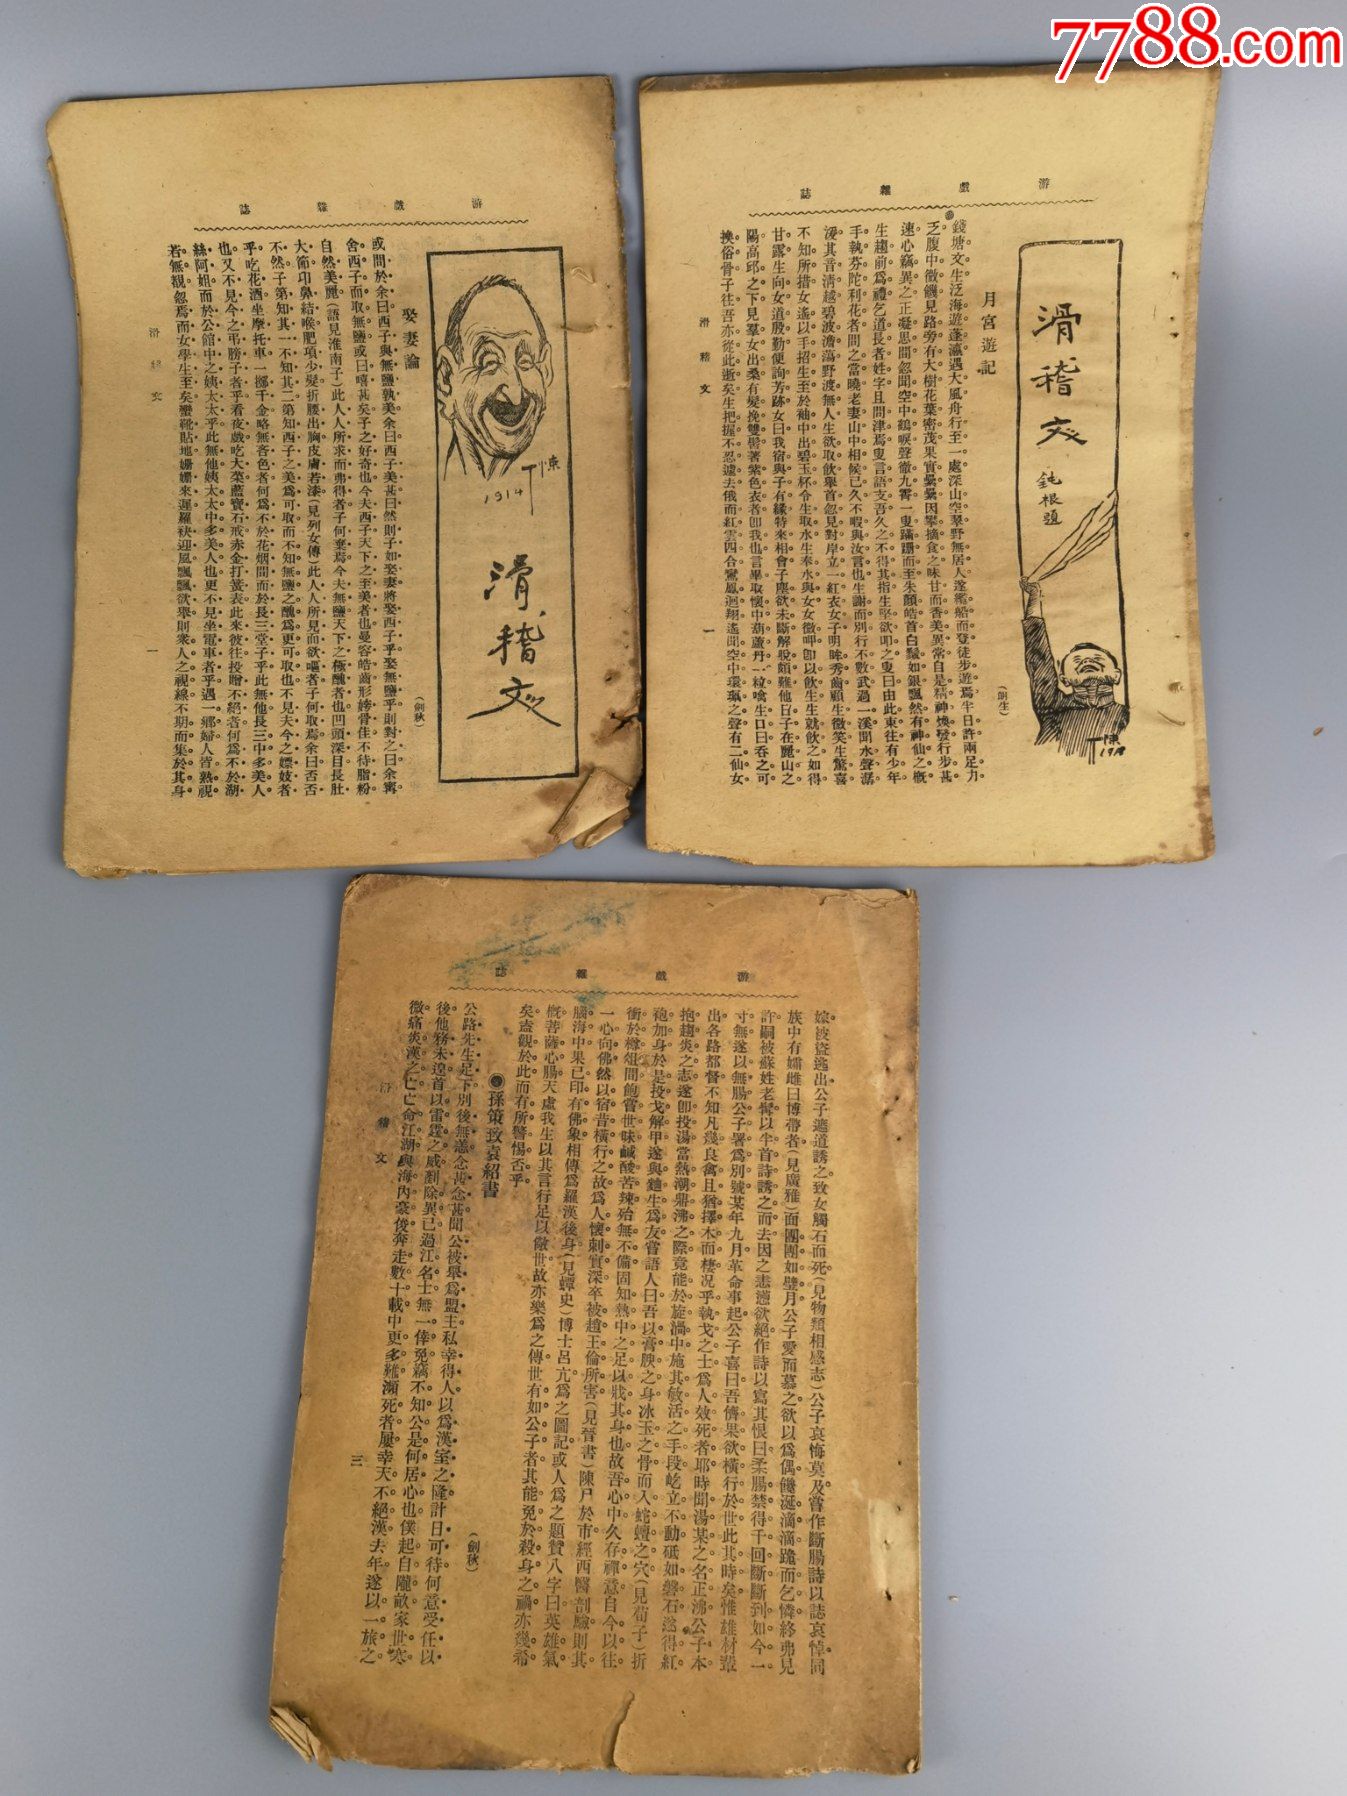 7788.com
游戲雜誌
陳丁
1914
滑稽文
娶妻論
(劍秋)
或問於余曰西子與無鹽孰美余曰西子美甚曰然則子如娶妻將娶西子乎娶無鹽乎則對之曰余寗
舍西子而取無鹽或曰嘻甚矣子之好奇也今夫西子天下之至美者也曼容皓齒形姱骨佳不待脂粉
自然美麗(語見淮南子)此人人所求而弗得者子何棄焉今夫無鹽天下之極醜者也凹頭深目長肚
大節卬鼻結喉肥項少髮折腰出胸皮膚若漆(見列女傳)此人人所見而欲嘔者子何取焉余曰否否
不然子第知其一不知其二第知西子之美爲可取而不知無鹽之醜爲更可取也不見夫今之嫖妓者
乎吃花酒坐摩托車一擲千金略無吝色者何爲不於花烟間而於長三堂子乎此無他長三中多美人
也又不見今之弔膀子者乎看夜戲吃大菜藍寶石戒赤金打簧表此來彼往投贈不絕者何爲不於湖
絲阿姐而於公館中之姨太太乎此無他姨太太中多美人也更不見坐電車者乎遇一鄉婦人皆熟視
若無覩忽焉而女學生至矣蠻靴貼地姍姍來遲羅袂迎風飄飄欲舉則衆人之視線不期而集於其身
滑稽文
一
游戲雜誌
滑稽文
鈍根題
陳丁
月宮遊記
錢塘文生泛海遊蓬瀛遇大風舟行至一處深山空翠野無居人遂纜船而登徒步遊焉半日許兩足力
乏腹中微饑見路旁有大樹花葉密茂果實纍纍因攀摘食之味甘而香美異常自是精神煥發行步甚
速心竊異之正凝思間忽聞空中鶴唳聲徹九霄一叟蹣跚而至朱顏皓首白鬚如銀飄然有神仙之概
生趨前爲禮乞道長者姓字且問津焉叟言語支吾久之不得其指生堅欲叩之叟曰由此東往有少年
手執芬陀利花者問之當曉老妻山中相候已久不暇與汝言也生謝而別行不數武過一溪聞水聲潺
湲其音淸越碧波澹蕩野渡無人生欲取飲舉首忽見對岸立一紅衣女子明眸秀齒顧生微笑生驚喜
不知所措女遙以手招生至於袖中出碧玉杯令生取水生奉水與女女微呷卽以飲生生就飲之如得
甘露生向女道殷勤便詢芳跡女曰我宿與子有緣特來相會子塵欲未斷解脫頗難他日子在麗山之
陽高邱之下見羣女出桑有髮挽雙髻著紫色衣者卽我也言畢取懷中葫蘆丹一粒噏生口曰吞之可
換俗骨子往吾亦從此逝矣生把握不忍遽去俄而紅雲四合鸞鳳迴翔遙聞空中環珮之聲有二仙女
滑稽文
一
游戲雜誌
嫁被盜逃出公子邀道誘之致女觸石而死(見物類相感志)公子哀悔莫及嘗作斷腸詩以誌哀悼同
族中有孀雌曰博帶者(見廣雅)面團團如璧月公子愛而慕之欲以爲偶饞涎滴滴跪而乞憐終弗見
許嗣被蘇姓老髯以半首詩誘之而去因之恚懣欲絕作詩以寫其恨曰柔腸禁得千回斷斷到如今一
寸無遂以無腸公子署爲別號某年九月革命事起公子喜曰吾儕果欲橫行於世此其時矣惟雄材輩
出各路都督不知凡幾良禽且猶擇木而棲况乎執戈之士爲人效死者耶時聞湯某之名正沸公子本
抱趨炎之志遂卽投湯當熱潮鼎沸之際竟能於旋渦中施其敏活之手段屹立不動砥如磐石遂得紅
袍加身於是投戈解甲遂與鏈生爲友嘗語人曰吾以膏腴之身冰玉之骨而入蛇蟺之穴(見荀子)折
衝於樽俎間飽嘗世味鹹酸苦辣殆無不備固知熱中之足以戕其身也故吾心中久存禪意自今以往
一心向佛然以宿昔橫行之故爲人懷刺實深卒被趙王倫所害(見晉書)陳尸於市經西醫剖驗則其
腦海中果已印有佛象相傳爲羅漢後身(見蟫史)博士呂亢爲之圖記或人爲之題贊八字曰英雄氣
槪菩薩心腸天虛我生以其言行足以儆世故亦樂爲之傳世有如公子者其能免於殺身之禍亦幾希
矣盍觀於此而有所警惕否乎
孫策致袁紹書
(劍秋)
公路先生足下別後無恙念甚念甚聞公被舉爲盟主私幸得人以爲漢室之隆計日可待何意受任以
後他務未遑首以雷霆之威剷除異已過江名士無一倖免竊不知公是何居心也僕起自隴畝家世寒
微痛炎漢之亡亡命江湖與海內豪俊奔走數十載中更多難瀕死者屢幸天不絕漢去年遂以一旅之
滑稽文
三